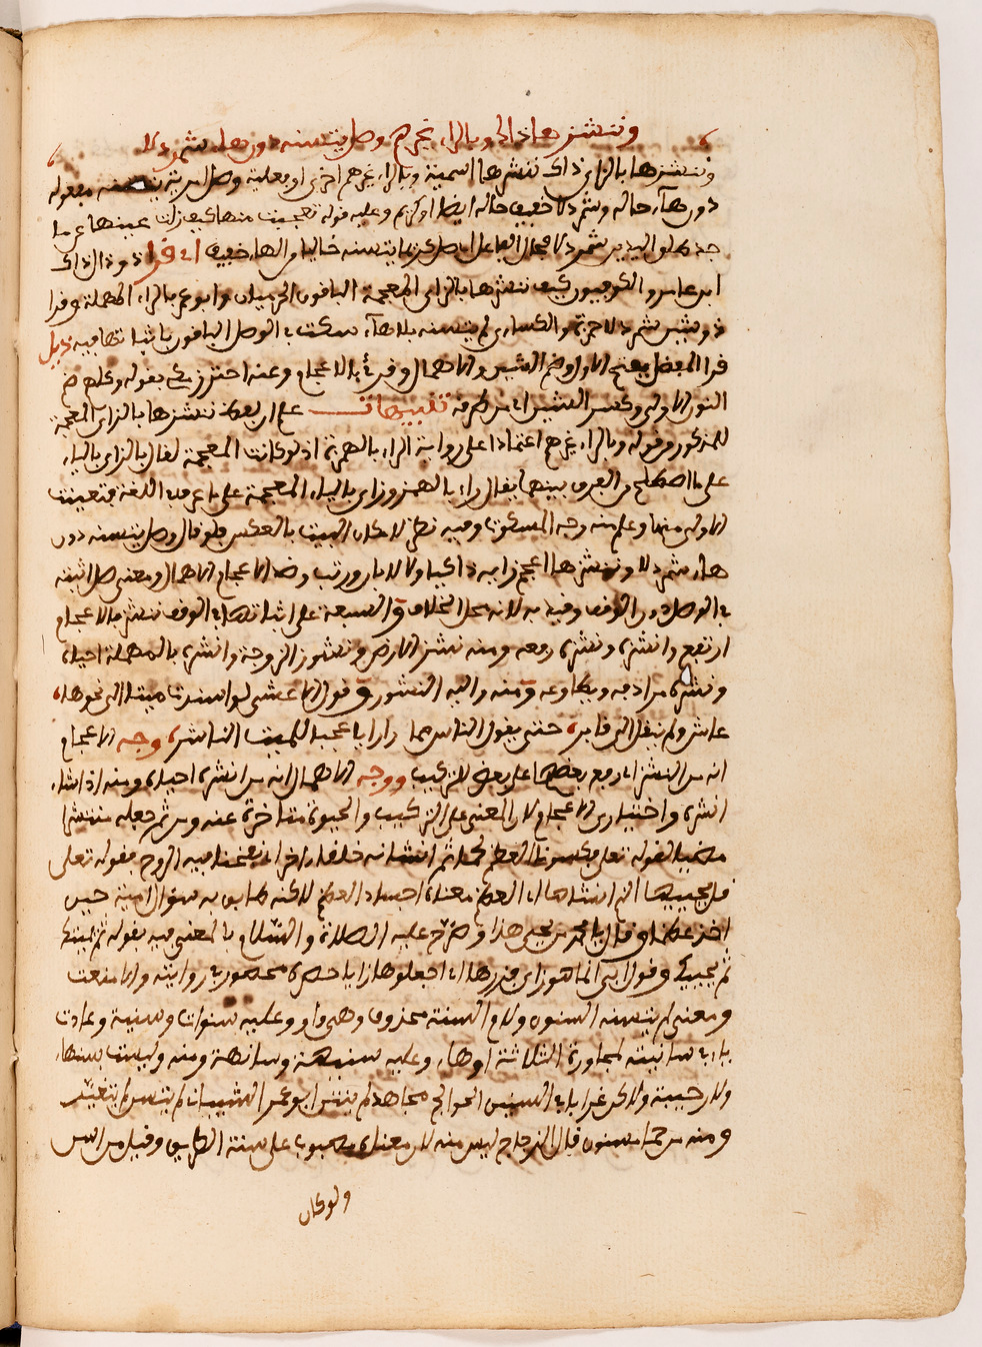 وننشزها ذاك وبالراء غيرهم وصل يتسنه دون هاء شمردلا
ننشزها بالزاي ذاك ننشزها اسمية وبالراء غيرهم اخرى او فعلية وصل امرية يتسنه مفعوله
دون هاء حاله وشمردلا خفيف حاله ايضا او كريم وعليه قوله تعجبت منها كيف زلت عينها عن ما
شمردلا فحال الفاعل اي صل يتسنه خاليا من الهاء خفيفا اي قرا ذو ذال ذاك
ابن عامر والكوفيون كيف ننشزها بالزاي المعجمة الباقون الحرميان وابو عمرو بالراء المهملة وقرا
ذو شين شمردلا حمزة والكسائي لم يتسنه بلا هاء سكت في الوصل الباقون باثباتها فيه ذيل
قرا المفضل بفتح الاول وضم الشين والاهمال وقرئ بالاعجام وعنه احترز بقوله وكلهم ضم
النون الاولى وكسر الشين اي من طرقه تنبيهات علم ان لفظ ننشزها بالزاي المعجمة
للمذكور وقوله وبالراء غيرهم اعتمادا على رواية الراء بالهمزة اذ لو كانت المعجمة لقال بالزاي بالياء
على ما اصطلح في الفرق بينهما يقال راء بالهمز وزاي بالياء المعجمة على ما عرف في اللغة فتعينت
الاولى منها وعلم منه وجه المسكوت وفيه نظر لامكان البيت بالعكس فلو قال وصل يتسنه دون
هاء شمردلا وننشزها اعجم زايه ذاكيا ولا لابان ورتب وضد الاعجام الاهمال ومعنى صل اثبته
في الوصل دون الوقف وقيد به لانه محل الخلاف والسبعة على اثباتها في الوقف ننشز بالاعجام
ارتفع وانشزه ونشزه رفعه ومنه نشز الارض ونشوز الزوجة وانشره بالمهملة احياه
ونشره مرادفه ويطاوعه ومنه واليه النشور وقول الاعشى لو اسندت ميتا الى نحرها
عاش ولم ينقل الى قابره حتى يقول الناس مما راوا يا عجبا للميت الناشر وجه الاعجام
انه من النشز اي رفع بعضها على بعض للتركيب ووجه الاهمال انه من انشره احياه ومنه اذا شاء
انشره واختياري الاعجام لان المعنى على التركيب والحيوة متاخرة عنه ومن ثم جعله منتشا
لقوله تعالى فكسونا العظام لحما ثم انشاناه خلقا اخر اي نفخنا فيه الروح فقوله تعالى
قل يحييها الذي انشاها اي العظم معناه احياء العظم لاكنه طابق به سؤال امية حين
اخذ عظما وقال يا محمد من يحيي هذا وصرح عليه الصلاة والسلام بالمعنى فيه بقوله ثم يميتك
ثم يحييك وقول ابي انما هو زاي فزدها اي اجعلوها زايا حصره محصور في روايته والا منعت
ومعنى لم يتسنه السنون ولام السنة محذوف وهي واو وعليه سنوات وسنية وعادت
ياء في سانيته لمجاورة الثلاثة او هاء وعليه سنيهة وسانهة ومنه وليست بسنهاء
ولا رجبية ولاكن عرايا في السنين الجوائح مجاهد لم ينتن ابو عمرو الشيباني لم يتسن لم يتغير
ومنه من حما مسنون قال الزجاج ليس منه لان معناه مصبوب على سنة الطريق وقيل من اسن
ولو كان